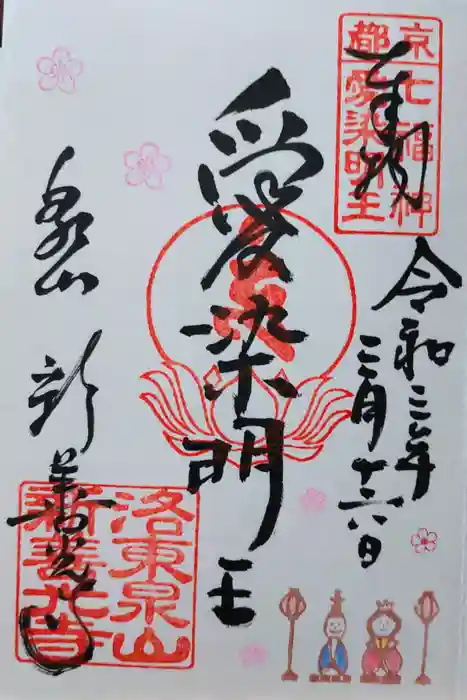 奉拝
京都
七福神
愛染明王
令和三年
三月十六日
愛染明王
泉山 新善光寺
洛東泉山
新善光寺